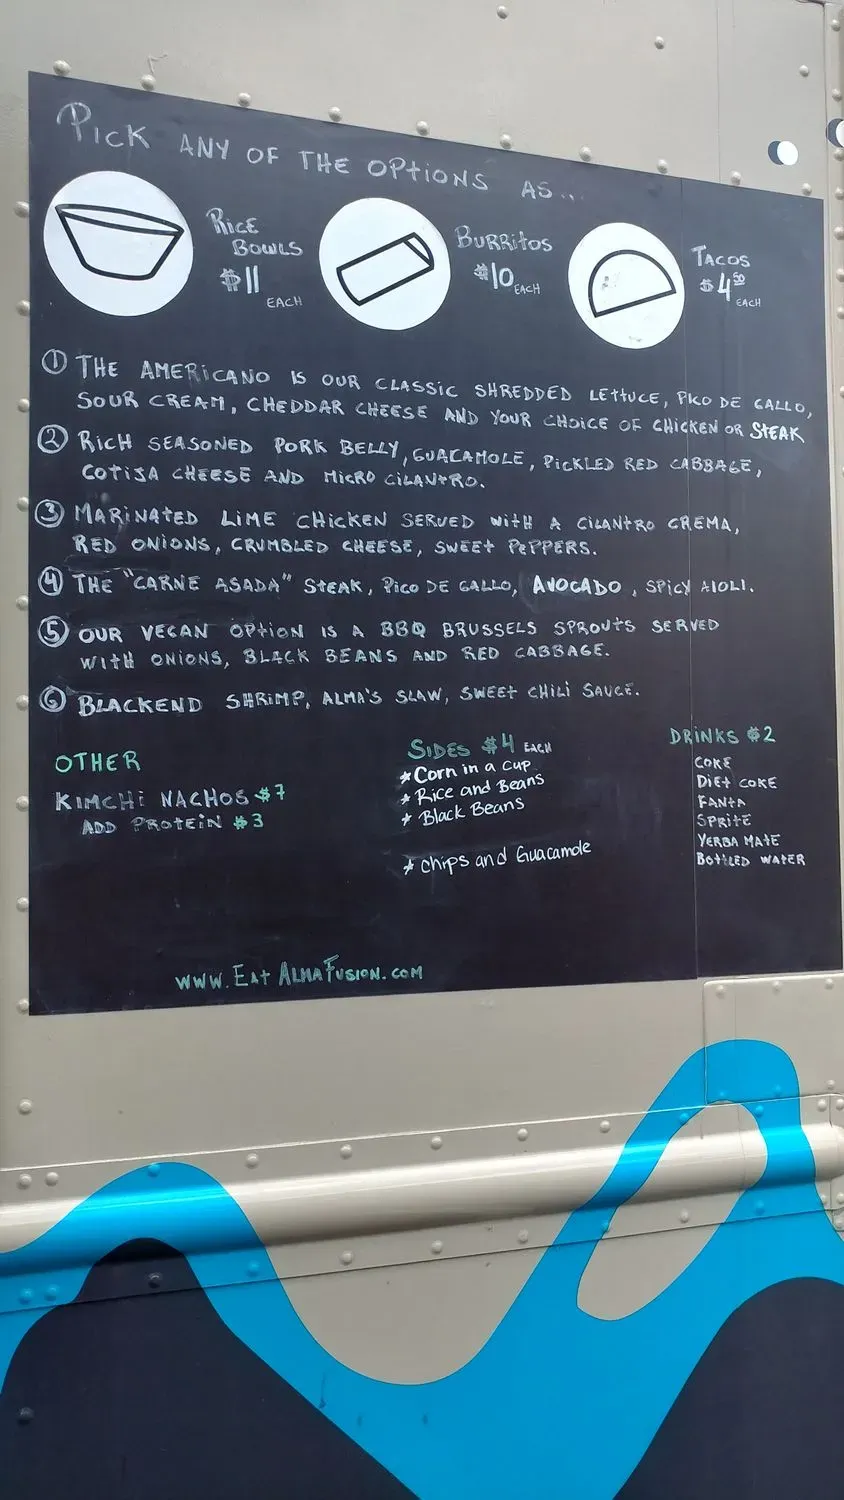 PICK ANY OF THE OPTIONS AS...
RICE
BOWLS
$11
EACH
BURRITOS
$10 EACH
TACOS
$4.50
EACH
① THE AMERICANO IS OUR CLASSIC SHREDDED LETTUCE, PICO DE GALLO,
SOUR CREAM, CHEDDAR CHEESE AND YOUR CHOICE OF CHICKEN OR STEAK
② RICH SEASONED PORK BELLY, GUACAMOLE, PICKLED RED CABBAGE,
COTIJA CHEESE AND MICRO CILANTRO.
③ MARINATED LIME CHICKEN SERVED WITH A CILANTRO CREMA,
RED ONIONS, CRUMBLED CHEESE, SWEET PEPPERS.
④ THE "CARNE ASADA" STEAK, PICO DE GALLO, AVOCADO, SPICY AIOLI.
⑤ OUR VEGAN OPTION IS A BBQ BRUSSELS SPROUTS SERVED
WITH ONIONS, BLACK BEANS AND RED CABBAGE.
⑥ BLACKEND SHRIMP, ALMA'S SLAW, SWEET CHILI SAUCE.
OTHER
KIMCHI NACHOS $7
ADD PROTEIN $3
SIDES $4 EACH
* Corn in a cup
* Rice and Beans
* Black Beans
* chips and Guacamole
DRINKS $2
COKE
DIET COKE
FANTA
SPRITE
YERBA MATE
BOTTLED WATER
WWW.EATALMAFUSION.COM